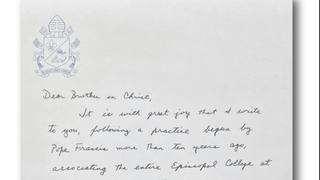 Dear Brother in Christ,
It is with great joy that I write
to you, following a practice begun by
Pope Francis more than ten years ago,
associating the entire Episcopal College at